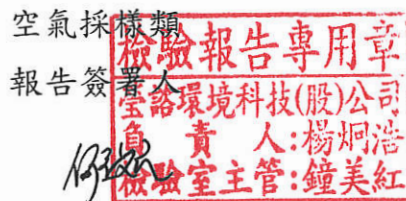 空氣採樣類
報告簽署人
檢驗報告專用章
瑩諮環境科技(股)公司
負責人:楊炯浩
檢驗室主管:鐘美紅